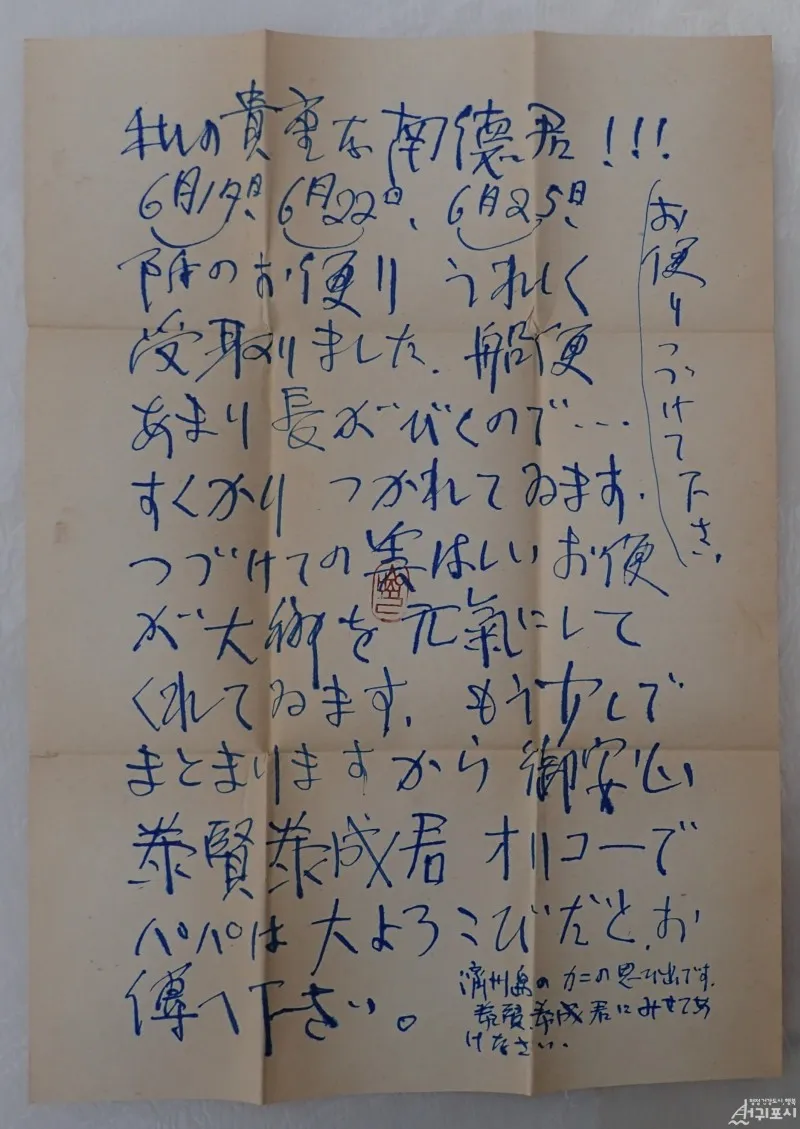 私の貴重な南德君!!!
6月19日、6月22日、6月25日、
附のお便り うれしく
受取りました。船便
あまり長がびくので…
すくかり つかれてゐます。
つづけての 美はしい お便
が 大鄕を 元氣にして
くれてゐます。もう少しで
まとまりますから 御安心
泰賢 泰成君 オリコーで
パパは 大よろこびだと、お
傳へ下さい。
お便りつづけて下さい。
濟州島の カニの 思ひ出です。
泰賢、泰成君に みせてあ
げなさい。
서귀포시